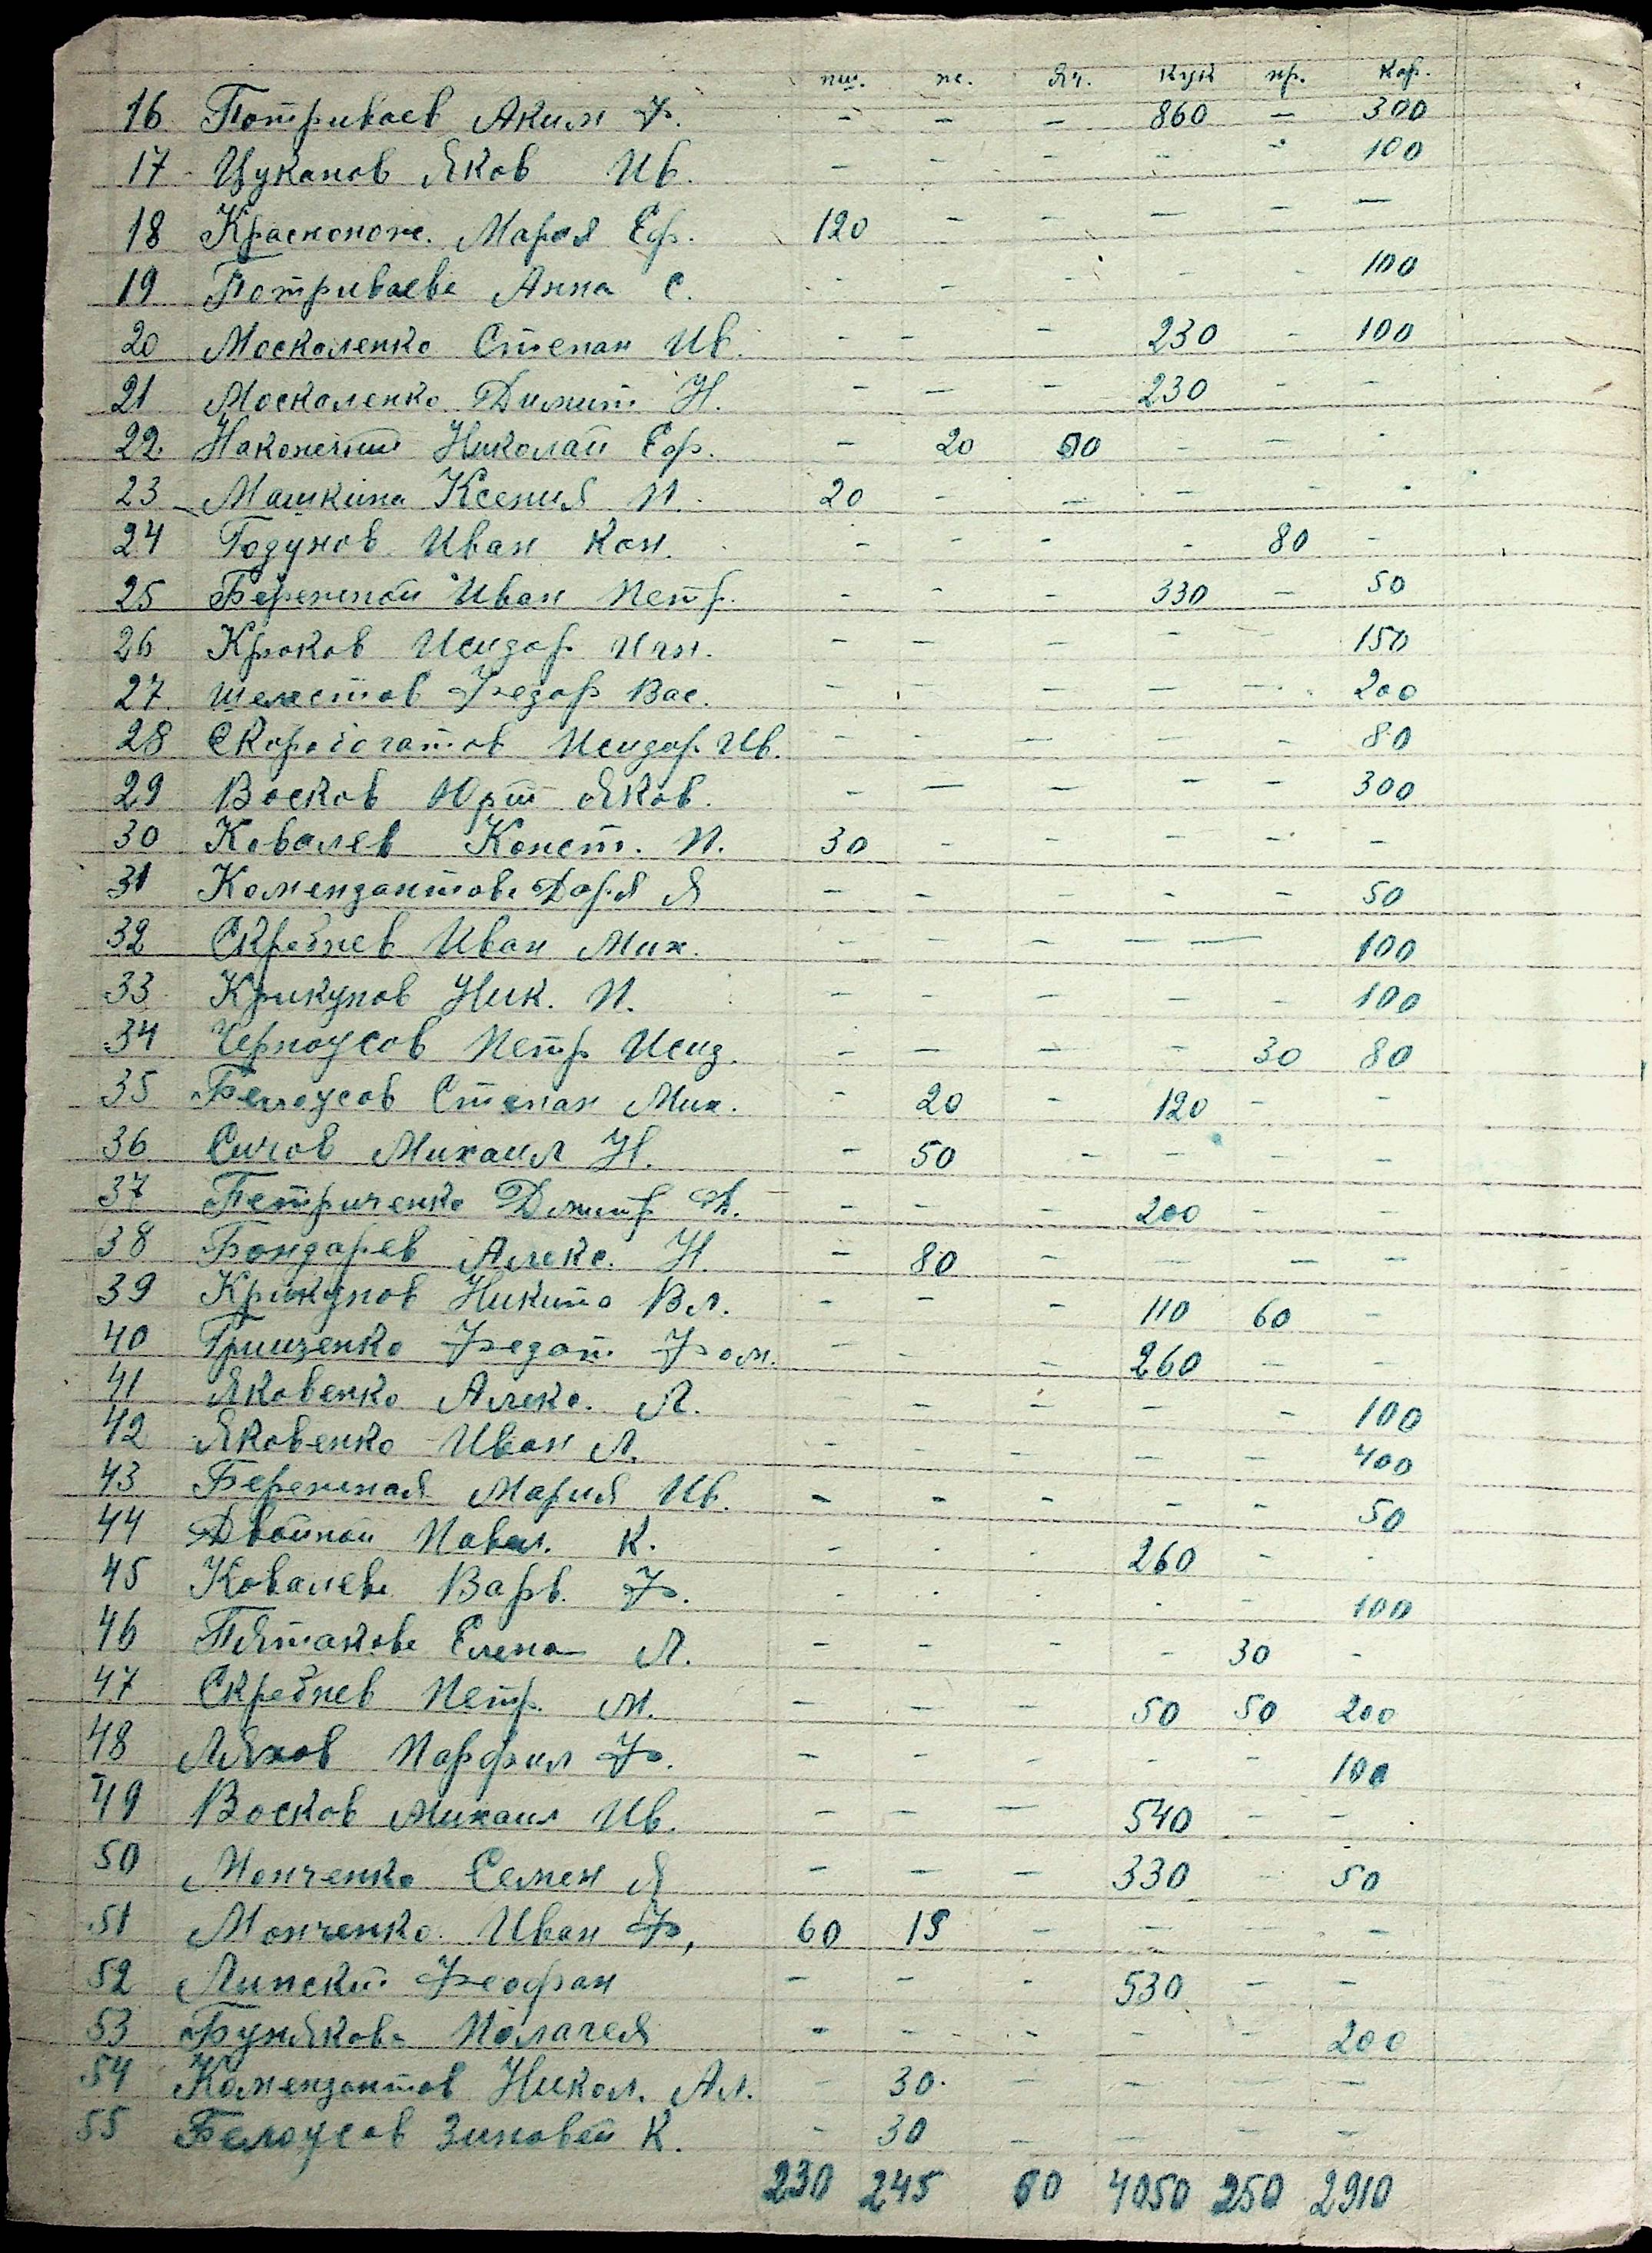 пш. пс. яч. кук пр. кар.
16 Потриваев Аким Ф. - - - 860 - 300
17 Цуканов Яков Ив. - - - - - 100
18 Краснонож. Мария Еф. 120 - - - - -
19 Потриваева Анна С. - - - - - 100
20 Москаленко Степан Ив. - - - 230 - 100
21 Москаленко Димит. Н. - - - 230 - -
22 Наконечний Николай Еф. - 20 - - -
23 Машкина Ксения П. 20 - - - - -
24 Годунов Иван Кон. - - - - 80 -
25 Бережной Иван Петр. - - - 330 - 50
26 Крюков Исидор - - - - - 150
27 Шелестов Федор Вас. - - - - - 200
28 Скоробогатов Исидор Ив. - - - - - 80
29 Восков Яков. - - - - - 300
30 Ковалев Конст. П. 30 - - - - -
31 Комендантова Дар.я Я - - - - - 50
32 Скребнев Иван Мих. - - - - 100
33 Крикунов Ник. П. - - - - - 100
34 Черноусов Петр Исид. - - - - 30 80
35 Белоусов Степан Мих. - 20 - 120 - -
36 Сичов Михаил Н. - 50 - - - -
37 Петриченко Дмитр - - - 200 - -
38 Бондарев Алекс. Н. - 80 - - - -
39 Крикунов Никита Вл. - - - 110 60 -
40 Грищенко Федот Фом. - - - 260 - -
41 Яковенко Алекс. Л. - - - - - 100
42 Яковенко Иван Л. - - - - - 400
43 Бережная Мария Ив. - - - - - 50
44 Двойной Павел. К. - - - 260 - -
45 Ковалева Варв. Ф. - - - - - 100
46 Пятакова Елена Л. - - - - 30 -
47 Скребнев Петр. М. - - - 50 50 200
48 Ляхов Парфил Ф. - - - - - 100
49 Восков Михаил Ив. - - - 540 - -
50 Монченко Семен Я - - - 330 - 50
51 Монченко Иван Ф, 60 15 - - - -
52 Липский Феофан - - - 530 - -
53 Бунякова Полагея - - - - - 200
54 Комендантов Никол. Ал. - 30 - - - -
55 Белоусов Зиновей К. - 30 - - - -
230 245 60 4050 250 2910